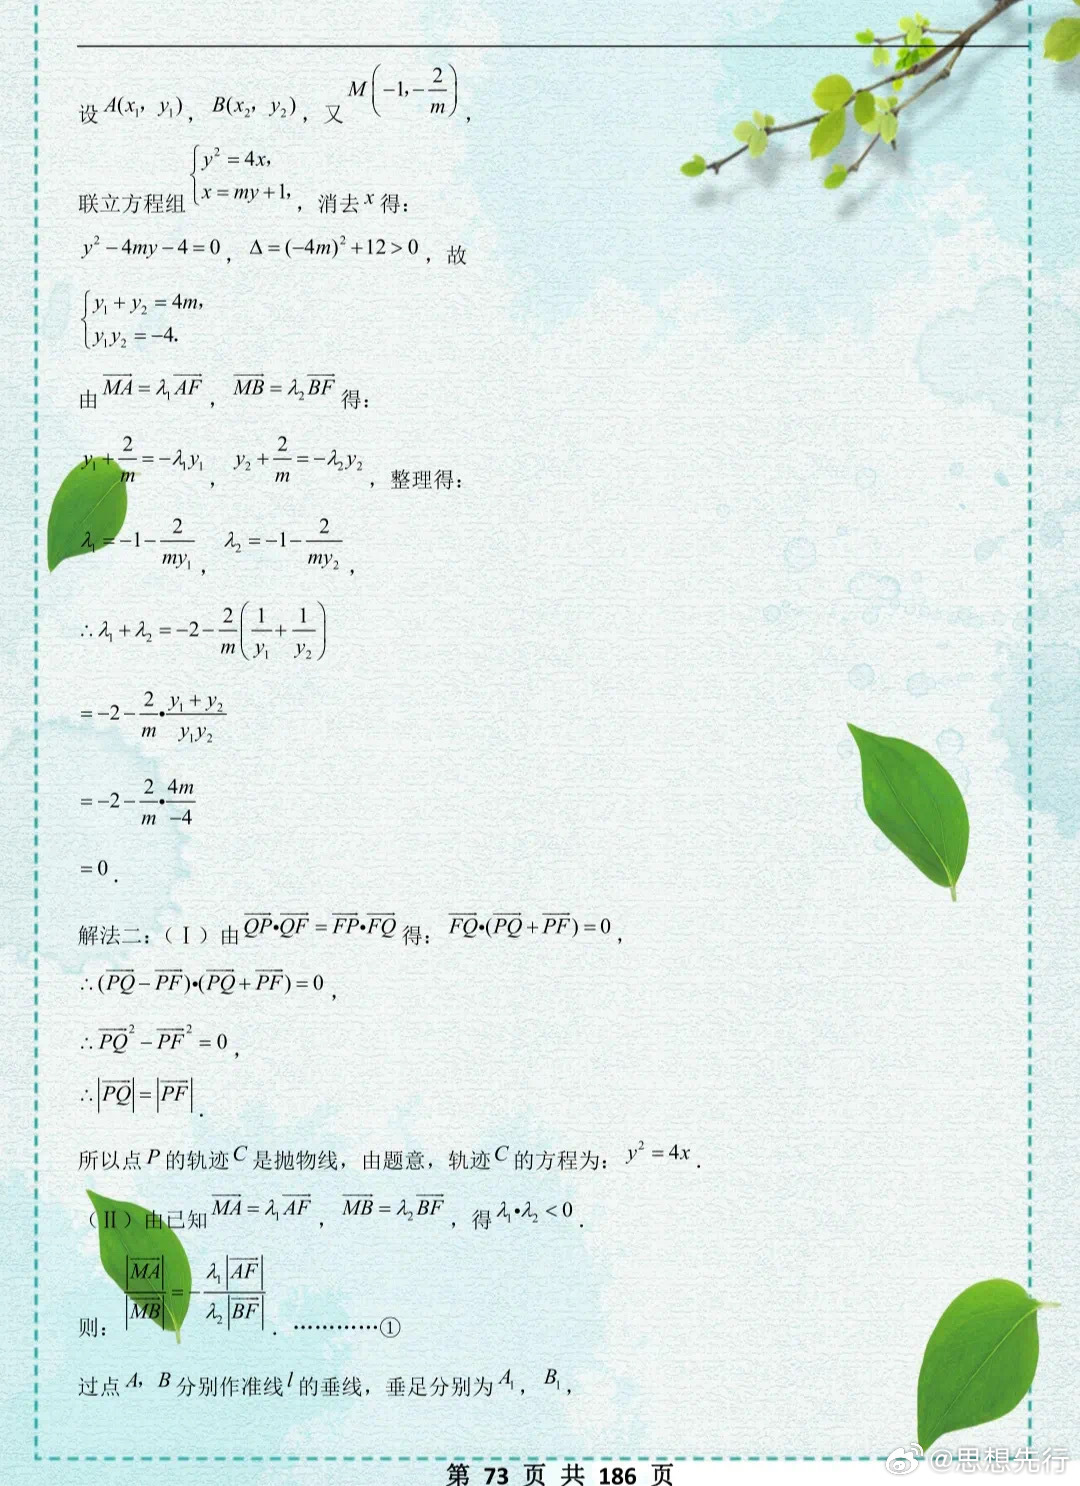 设 A(x₁, y₁), B(x₂, y₂), 又 M(−1, −2/m),
联立方程组 { y² = 4x, x = my + 1, , 消去 x 得:
y² − 4my − 4 = 0, Δ = (−4m)² + 12 > 0, 故
{ y₁ + y₂ = 4m, y₁y₂ = −4.
由 \overrightarrow{MA} = λ₁\overrightarrow{AF}, \overrightarrow{MB} = λ₂\overrightarrow{BF} 得:
y₁ + 2/m = −λ₁y₁, y₂ + 2/m = −λ₂y₂, 整理得:
λ₁ = −1 − 2/(my₁), λ₂ = −1 − 2/(my₂),
∴ λ₁ + λ₂ = −2 − 2/m (1/y₁ + 1/y₂)
= −2 − 2/m • (y₁ + y₂)/(y₁y₂)
= −2 − 2/m • 4m/(−4)
= 0.
解法二:(Ⅰ)由 \overrightarrow{QP}•\overrightarrow{QF} = \overrightarrow{FP}•\overrightarrow{FQ} 得: \overrightarrow{FQ}•(\overrightarrow{PQ} + \overrightarrow{PF}) = 0,
∴ (\overrightarrow{PQ} − \overrightarrow{PF})•(\overrightarrow{PQ} + \overrightarrow{PF}) = 0,
∴ \overrightarrow{PQ}² − \overrightarrow{PF}² = 0,
∴ |\overrightarrow{PQ}| = |\overrightarrow{PF}|.
所以点 P 的轨迹 C 是抛物线, 由题意, 轨迹 C 的方程为: y² = 4x.
(Ⅱ)由已知 \overrightarrow{MA} = λ₁\overrightarrow{AF}, \overrightarrow{MB} = λ₂\overrightarrow{BF}, 得 λ₁•λ₂ < 0.
则: |\overrightarrow{MA}|/|\overrightarrow{MB}| = −λ₁|\overrightarrow{AF}|/(λ₂|\overrightarrow{BF}|). …………①
过点 A, B 分别作准线 l 的垂线, 垂足分别为 A₁, B₁,
第 73 页 共 186 页
@思想先行